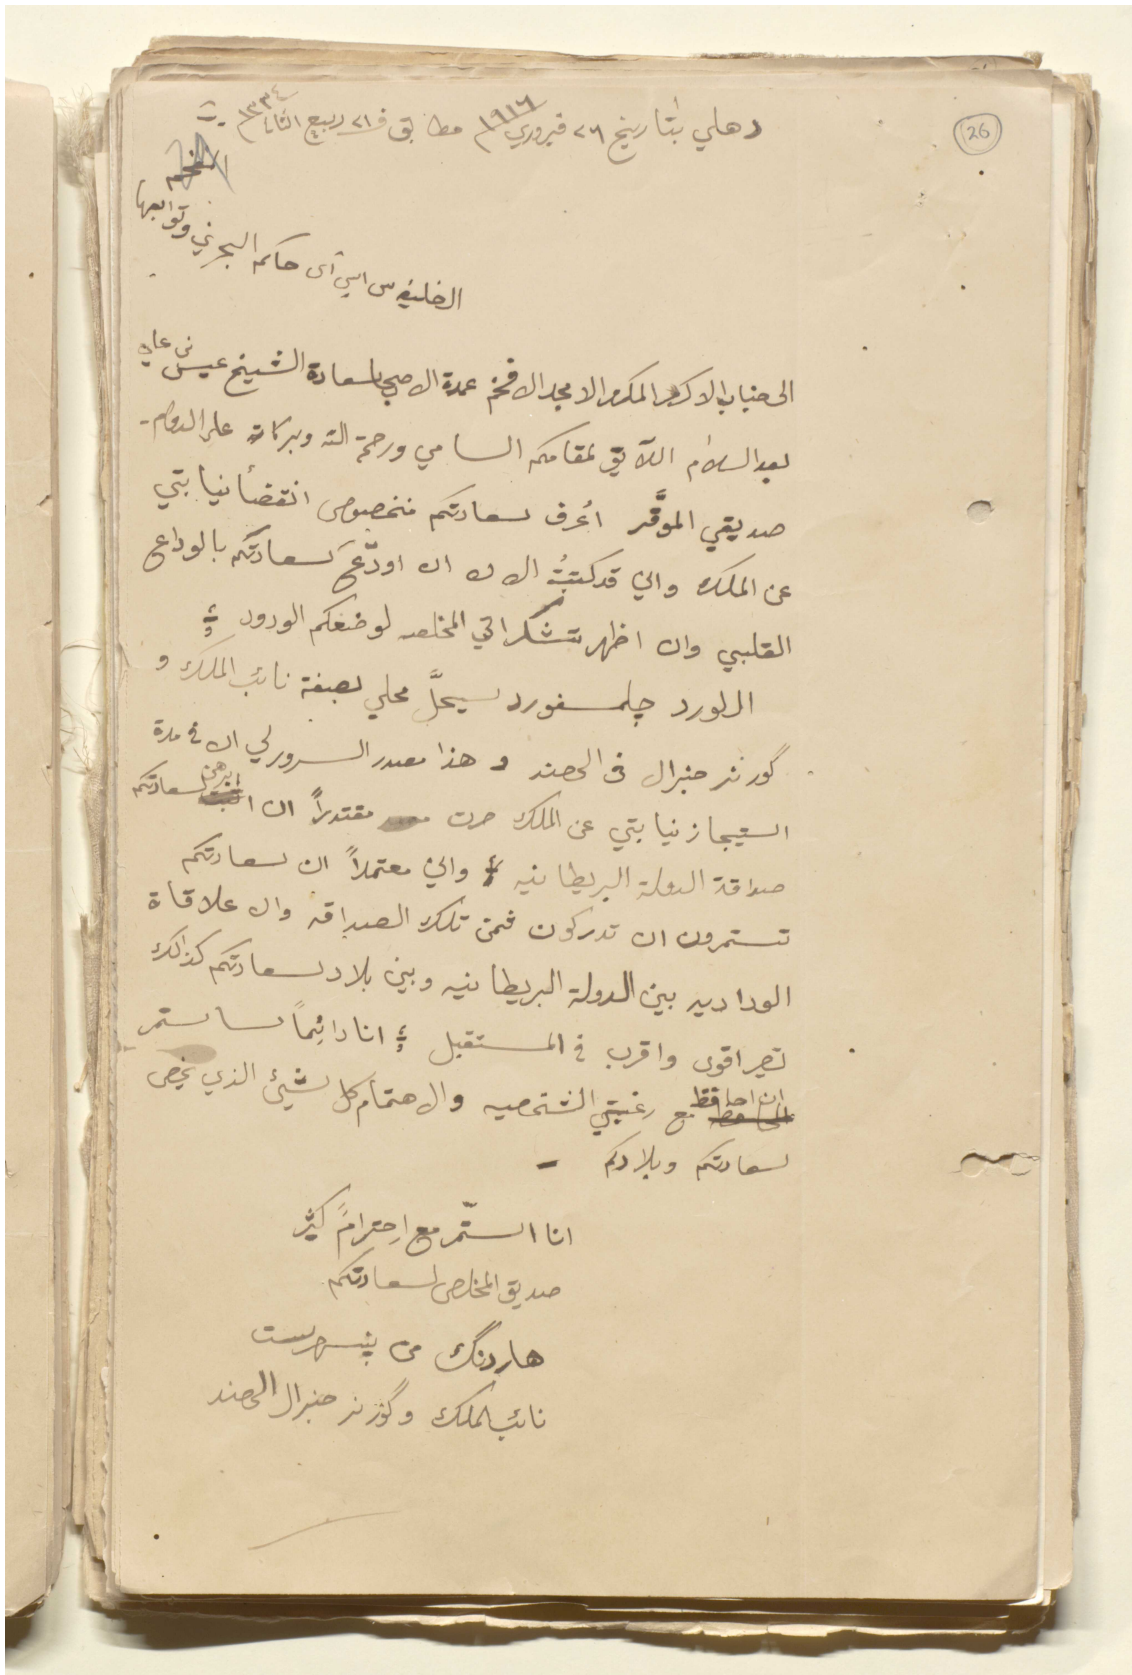 26
دهلي بتاريخ ٢٦ فيروري ١٩١٦م مطابق في ٢١ ربيع الثاني ١٣٣٤
الخليفه سي ايس آي حاكم البحرين وتوابعها
الى جناب الاكرم المكرم الامجد الافخم عمدة الاصحاب سعادة الشيخ عيسى بن علي
بعد السلام اللآيق لمقامكم السامي ورحمة الله وبركاته على الدوام -
صديقي الموقَّر اعُرف سعادتكم منخصوص انقضأ نيابتي
عن الملك واني قد كتبتُ الان ان اودّعَ سعادتكم بالوداع
القلبي وان اظهر تشكراتي المخلصه لوضعكم الودود
اللورد چلمسفورد سيحلَّ محلي بصفة نائب الملك و
گورنر جنرال في الهند و هذا مصدر السرور لي ان في مدة
استيجاز نيابتي عن الملك صرت مقتدراً ان ابرهن لسعادتكم
صداقة الدولة البريطانيه واني معتمداً ان سعادتكم
تستمرون ان تدركون ثمن تلك الصداقه وان علاقاة
الوداديه بين الدولة البريطانيه وبين بلاد سعادتكم كذالك
تصير اقوى واقرب في المستقبل انا دائِماً ساستمر
ان احافظ مع رغبتي الشخصيه والاهتمام كل شيئ الذي يخص
سعادتكم وبلادكم -
انا استمّر مع احِترامً كثير
صديق المخلص لسعادتكم
هاردنگ من پنسهرست
نائب الملك و گورنر جنرال الهند